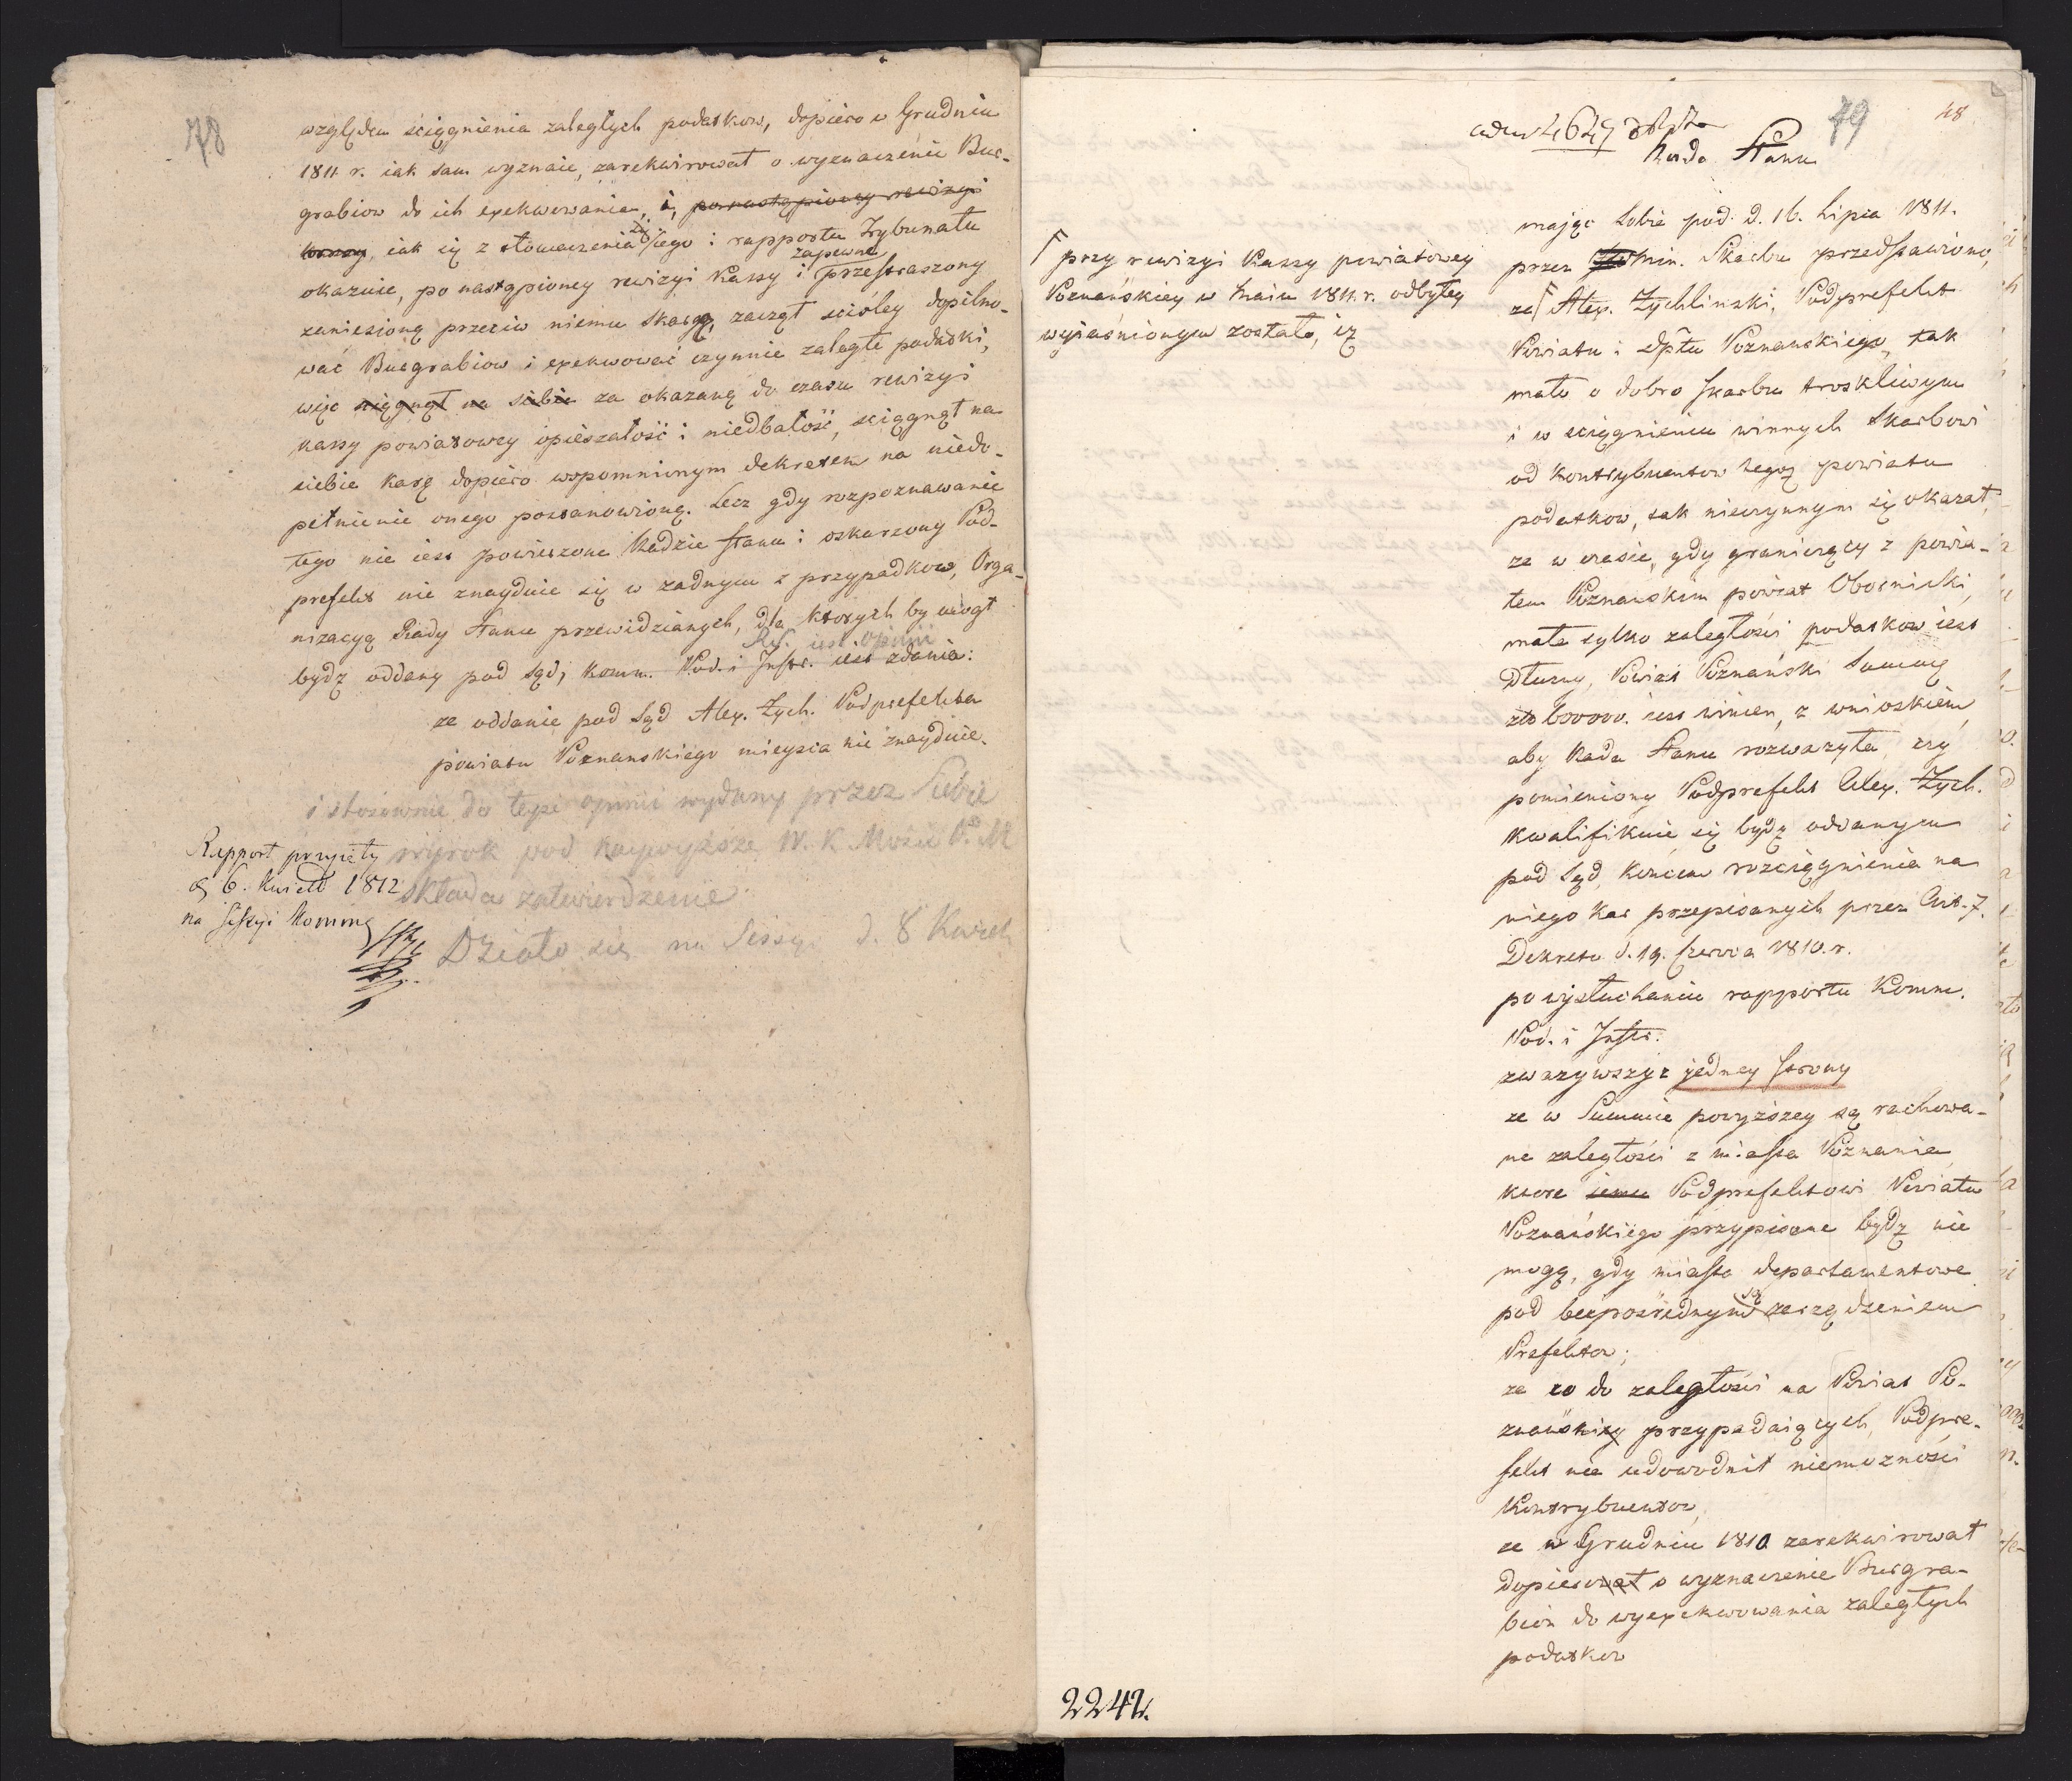 78
względem sciągnienia zaległych podatkow, dopiero w Grudniu
1811 r. iak sam wyznaie, zarekwirował o wyznaczenie Bur-
grabiow do ich exekwowania, i, po nastąpioney rewizyi
kassy, iak się z tłomaczenia iego i rapportu Trybunału
zapewne
okazuie, po nastąpioney rewizyi Kassy i przestraszony
zaniesioną przeciw niemu skargą, zaczął sciśley dopilno-
wać Burgrabiow i exekwować czynnie zaległe podatki,
więc sciągnął na siebie za okazaną do czasu rewizyi
kassy powiatowey opieszałość i niedbałość, sciągnął na
siebie karę dopiero wspomnionym dekretem na niedo-
pełnienie onego postanowioną. Lecz gdy rozpoznawanie
tego nie iest powierzone Radzie Stanu i oskarzony Pod-
prefekt nie znayduie się w zadnym z przypadkow, Orga-
nizacyą Rady Stanu przewidzianych, dla ktorych by mogł
iest opinii
bydź oddany pod sąd; Komm. Pod. i Instr. iest zdania:
ze oddanie pod Sąd Alex. Zych. Podprefekta
powiatu Poznanskiego mieysca nie znayduie.
i stosownie do teyże opinii wydany przez Siebie
wyrok pod naywyższe W. K. Mości P. M
składa zatwierdzenie
Działo się na Sessyi d. 8 Kwiet
Rapport przyięty
d 6. Kwiet 1812
na Sessyi Komm
79
48
4647
Rada Stanu
maiąc Sobie pod. d. 16. Lipca 1811.
przez Min. Skarbu przedstawiono,
ze Alex. Zychlinski, Podprefekt
Powiatu i Dptu Poznanskiego, tak
mało o dobro skarbu troskliwym
i w sciągnieniu winnych Skarbowi
od Kontrybuentow tegoż powiatu
podatkow, tak nieczynnym się okazał,
ze w czasie, gdy graniczący z powia-
tem Poznanskim powiat Obornicki,
małe tylko zaległości podatkow iest
dłużny, Powiat Poznański Summę
zło 600000. iest winien, z wnioskiem,
aby Rada Stanu rozważyła, czy
pomieniony Podprefekt Alex. Zych.
kwalifikuie się bydź oddanym
pod Sąd, końcem rozciągnienia na
niego kar przepisanych przez Art. 7.
Dekretu d. 19. Czerwca 1810. r.
po wysłuchaniu rapportu Komm.
Pod. i Instr:
zwazywszy z jedney strony
ze w Summie powyższey są rachowa-
ne zaległości z miasta Poznania
ktore iemu Podprefektowi Powiatu
Poznańskiego przypisane bydź nie
mogą, gdy miasta departamentowe
są
pod bezpośrednym zarządzeniem
Prefektow;
ze co do zaległości na Powiat Po-
znański przypadaiących, Podpre-
fekt nie udowodnił niemożności
Kontrybuentow,
ze w Grudniu 1810 zarekwirował
dopiero o wyznaczenie Burgra-
biow do wyexekwowania zaległych
podatkow
przy rewizyi Kassy powiatowey
Poznańskiey w Maiu 1811. r. odbytey
wyiaśnionym zostało, iż
2242.